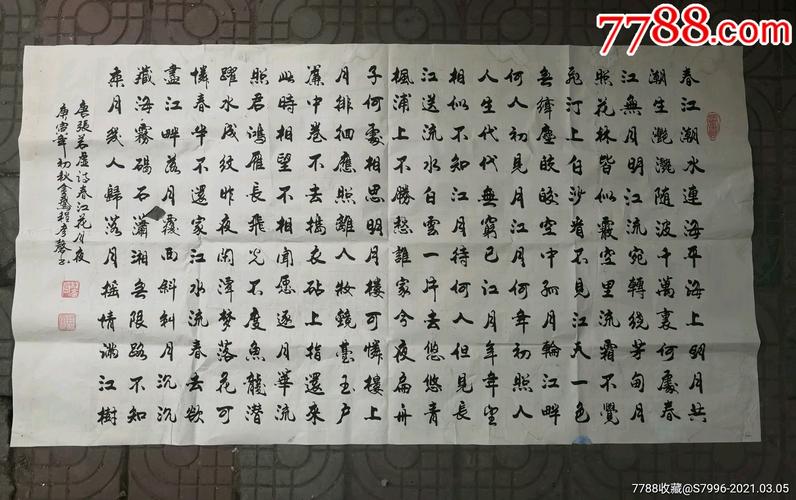 春江潮水連海平海上明月共
潮生灧灧隨波千萬裏何處春
江無月明江流宛轉繞芳甸月
照花林皆似霰空里流霜不覺
飛汀上白沙看不見江天一色
無纖塵皎皎空中孤月輪江畔
何人初見月江月何年初照人
人生代代無窮已江月年年望
相似不知江月待何人但見長
江送流水白雲一片去悠悠青
楓浦上不勝愁誰家今夜扁舟
子何處相思明月樓可憐樓上
月排徊應照離人妝鏡臺玉户
簾中卷不去搗衣砧上拂還來
此時相望不相聞愿逐月華流
照君鴻雁長飛光不度魚龍潛
躍水成紋昨夜閑潭夢落花可
憐春半不還家江水流春去欲
盡江畔落月覆西斜斜月沉沉
藏海霧碣石瀟湘無限路不知
乘月幾人歸落月搖情滿江樹
唐張若虛詩春江花月夜
庚寅年初秋
7788.com
7788收藏@S7996-2021.03.05